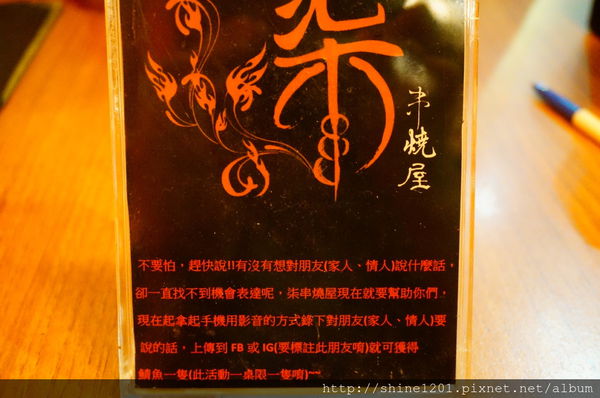 柒
串燒屋
不要怕，趕快說!!有沒有想對朋友(家人、情人)說什麼話，
卻一直找不到機會表達呢，柒串燒屋現在就要幫助你們，
現在起拿起手機用影音的方式錄下對朋友(家人、情人)要
說的話，上傳到 FB 或 IG(要標註此朋友唷)就可獲得
鯖魚一隻(此活動一桌限一隻唷)~~
http://shine1201.pixnet.net/album